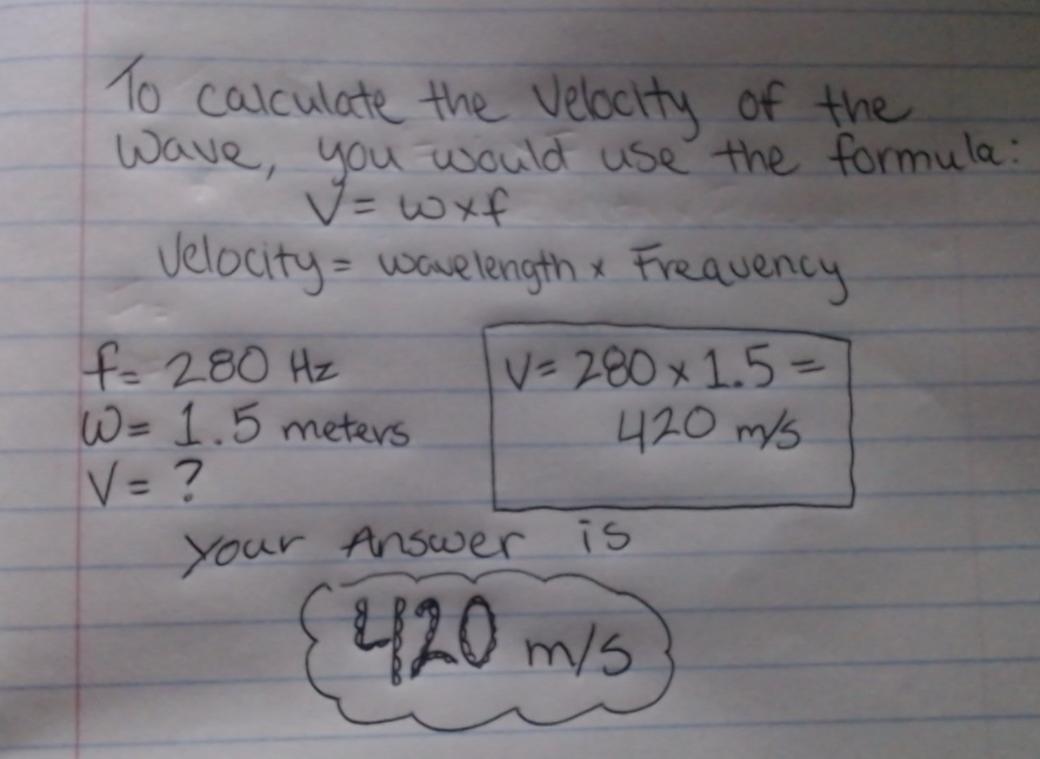 To calculate the Velocity of the
Wave, you would use the formula:
V = w x f
Velocity = wavelength x Frequency
f = 280 Hz
W = 1.5 meters
V = ?
V = 280 x 1.5 =
420 m/s
your Answer is
420 m/s